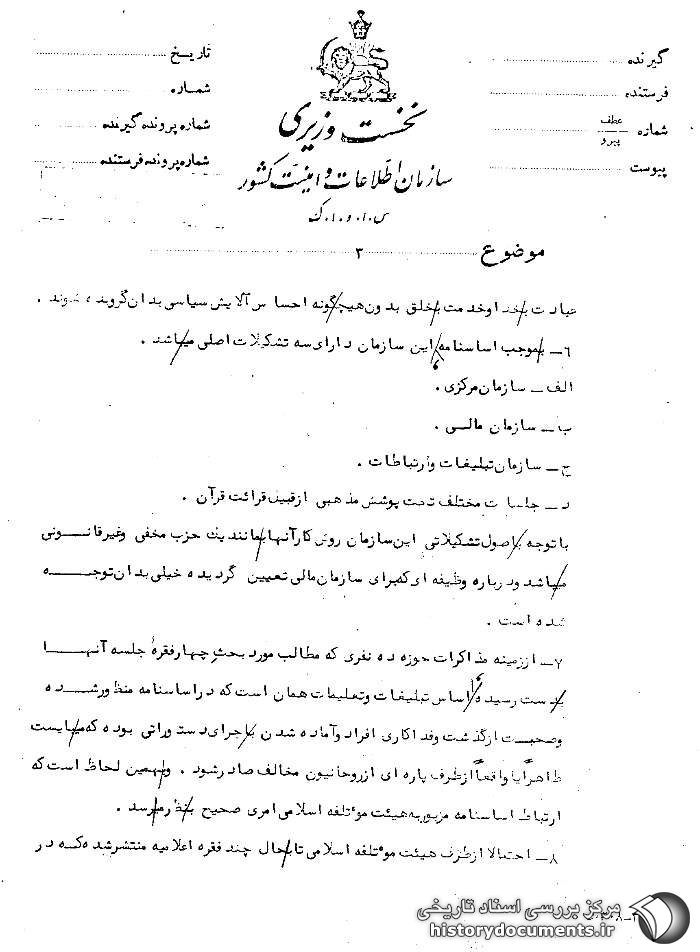 گیرنده
فرستنده
شماره عطف پیرو
پیوست
نخست وزیری
سازمان اطلاعات و امنیت کشور
تاریخ
شماره
شماره پرونده گیرنده
شماره پرونده فرستنده
موضوع ۳
عبادت بخدا و خدمت بخلق بدون هیچگونه احساس آلایش سیاسی بدان گرویده شوند .
۶ــ بموجب اساسنامه این سازمان دارای سه تشکیلات اصلی میباشد .
الف ــ سازمان مرکزی .
ب ــ سازمان مالــی .
ج ــ سازمان تبلیغات وارتباطات .
د ــ جلسات مختلف تحت پوشش مذهبی ازقبیل قرائت قرآن .
با توجه باصول تشکیلاتی این سازمان روش کار آنها بمانند یك حزب مخفی وغیرقانــونی
میباشد ودرباره وظیفه ای که برای سازمان مالی تعیین گردیده خیلی بدان توجــه
شده است .
۷ــ اززمینه مذاکرات حوزه ده نفری که مطالب مورد بحث چهارفقرهٔ جلسه آنهــا
بدست رسیده اساس تبلیغات وتعلیمات همان است که دراساسنامه منظورشــده
وصحبــت ازگذشت وفداکاری افراد وآماده شدن باجرای دستوراتی بوده که میبایست
ظاهراً یا واقعاً ازطرف پاره ای ازروحانیون مخالف صادرشود . وبهمین لحاظ است که
ارتباط اساسنامه مزبور به هیئت موٴتلفه اسلامی امری صحیح بنظر میرسد .
۸ــ احتمالا ازطرف هیئت موٴتلفه اسلامی تا بحال چند فقره اعلامیه منتشرشده که در
مرکز بررسی اسناد تاریخی
historydocuments.ir